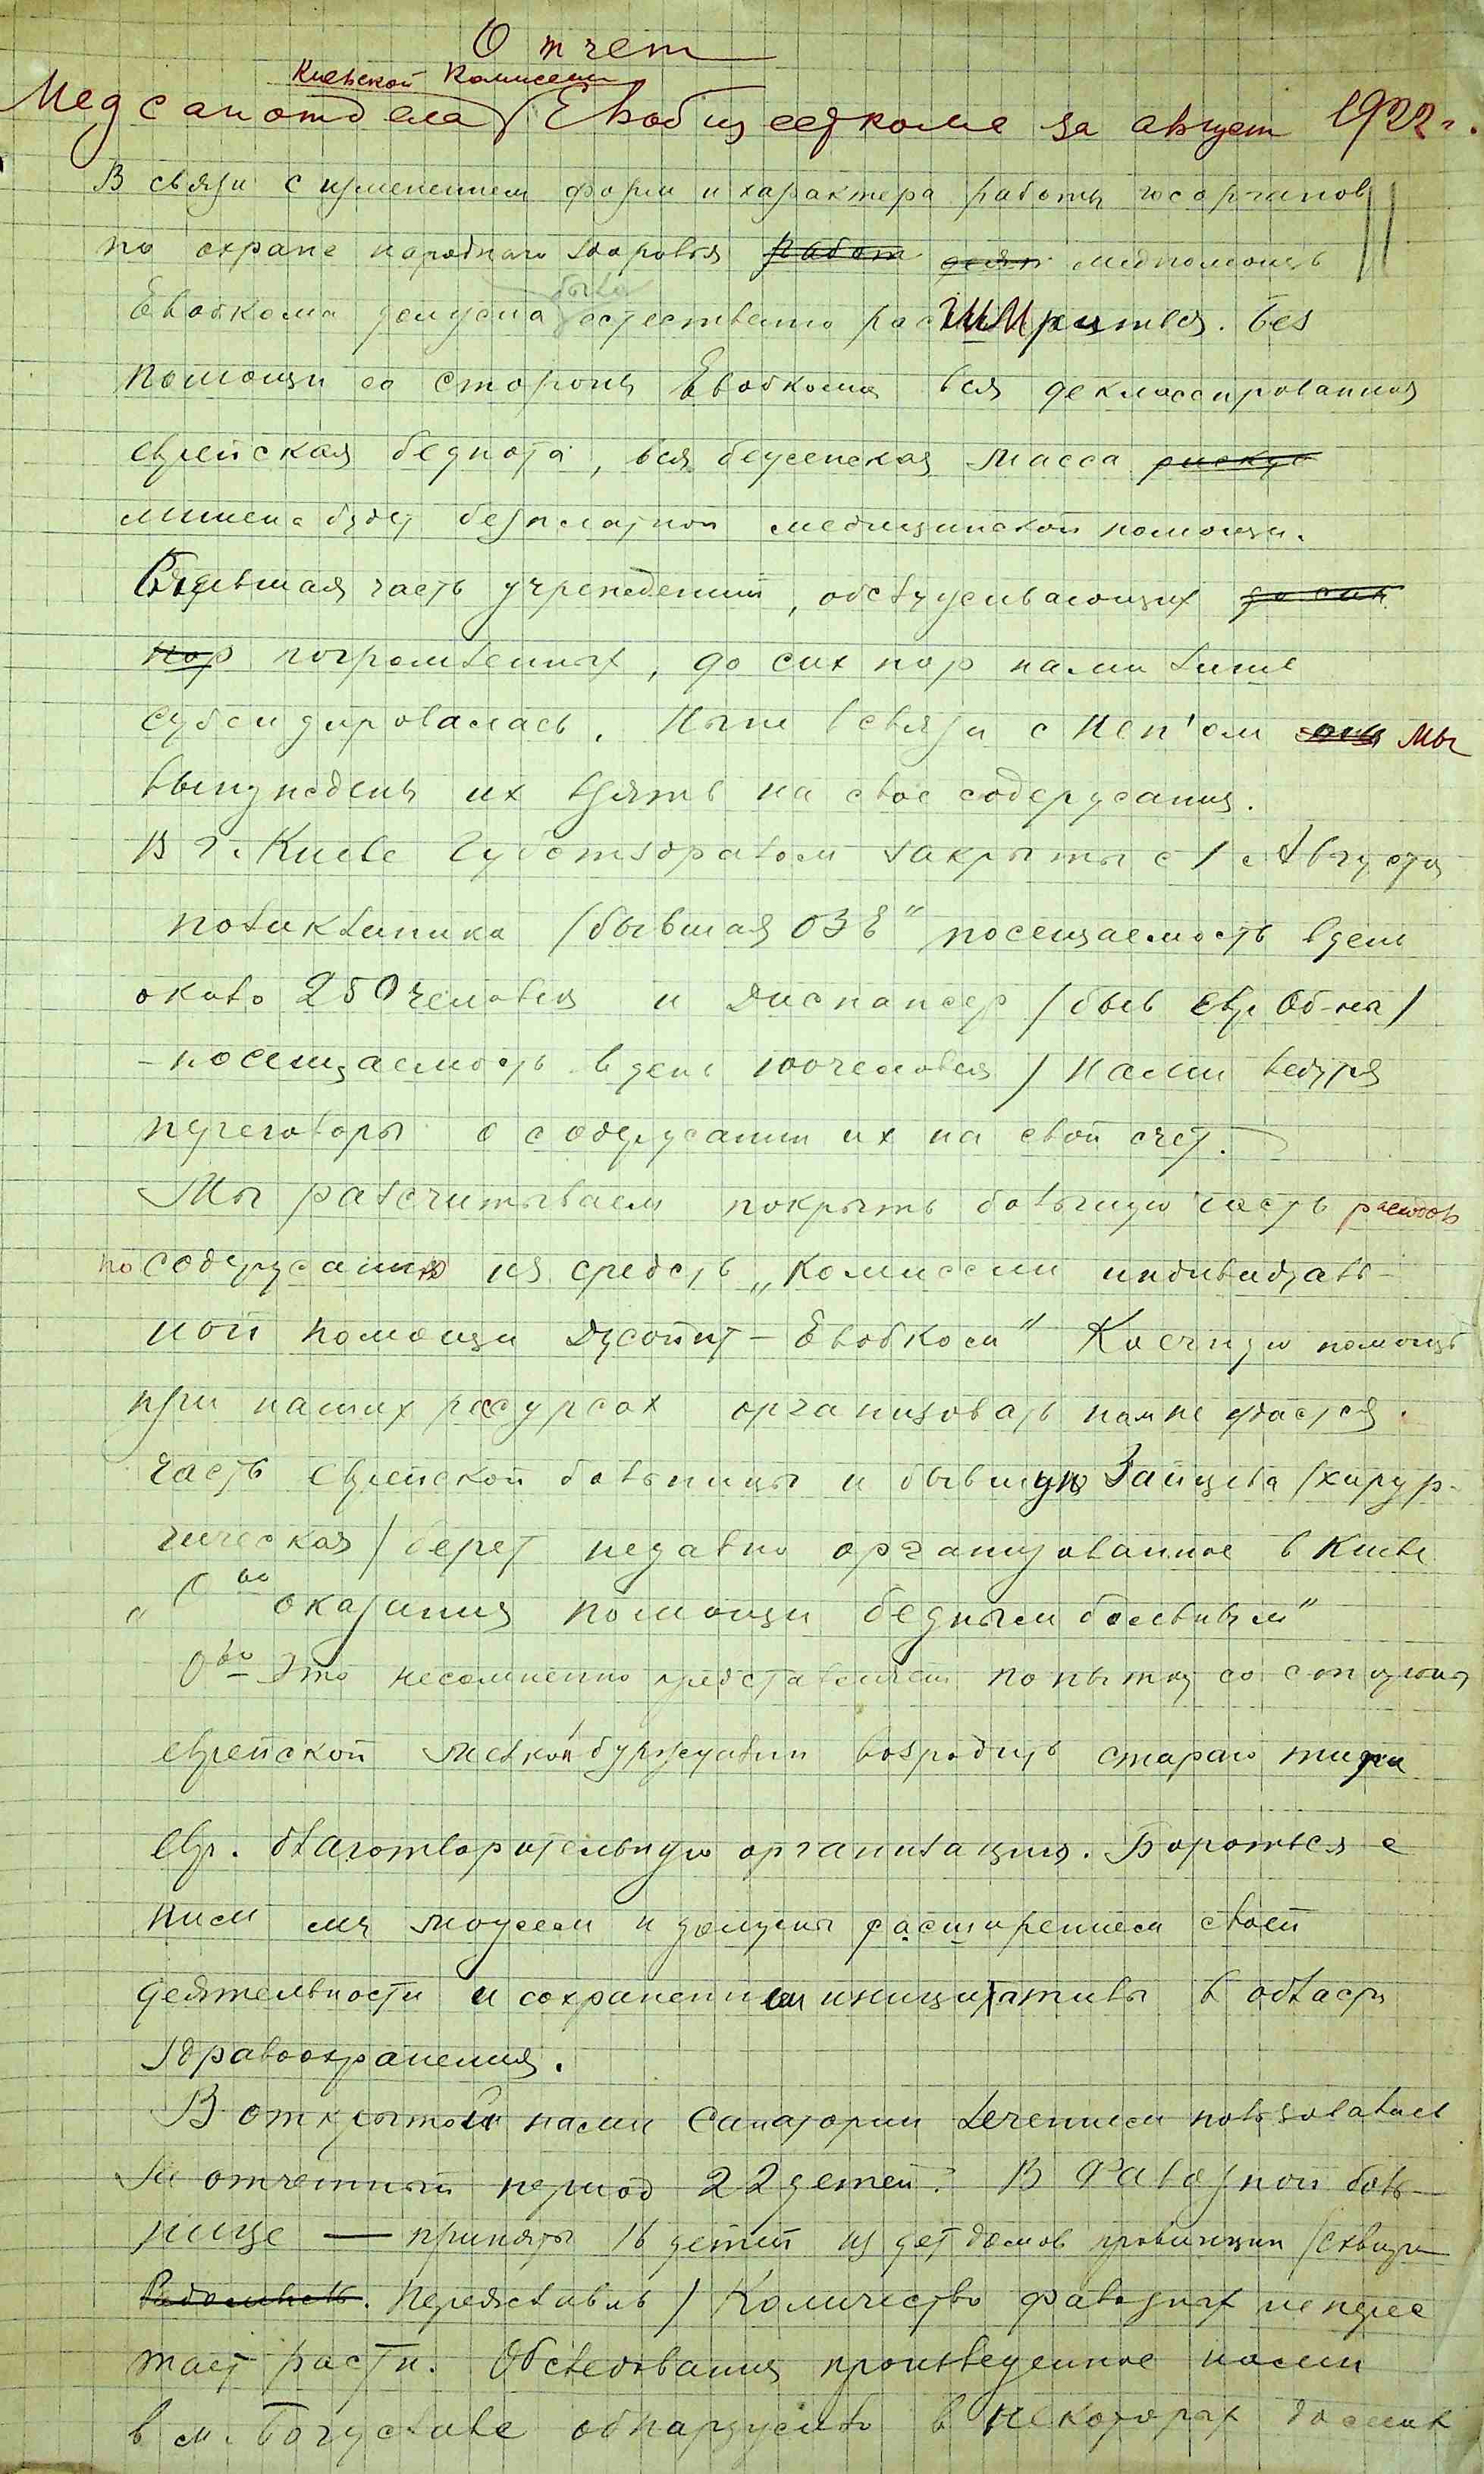 Отчет
Киевской Комиссии
Медсанотдела Евобщесткома за август 1922 г.
В связи с изменением форм и характера работы госорганов
по охране народного здоровья работ медпомощь
Евобкома должна была естественно расшириться. Без
помощи со стороны Евобкома вся деклассированная
еврейская беднота, вся беженская масса рискует
лишена будет безплатной медицинской помощи.
Большая часть учреждений, обслуживающих до сих
пор погромленных, до сих пор нами лише
субсидировалась. Ныне в связи с Неп'ом они мы
вынуждены их взять на свое содержания.
В г. Киеве Губотздравом закрыты с 1 Августа
поликлиника /бывшая ОЗЕ" посещаемость в день
около 250 человек и Диспансер /быв Евр. Об-ны/
- посещаемость в день 100 человек / Нами ведутся
переговоры о содержании их на свой счет.
Мы разсчитываем покрыть большую часть расходов
по содержанию из средств „Комиссии индивидуаль-
ной помощи Джойнт - Евобком" Коечную помощь
при наших ресурсах организовать нам не удастся.
часть еврейской больницы и бывшую Зайцева /хирур-
гическая/ берет недавно организованное в Киеве
„О во оказания помощи бедным больным"
О во это несомненно представляет попытку со стороны
еврейской мелкой буржуазии возродить стараго типа
евр. благотворительную организацию. Бороться с
ним мы можем и должны расширением своей
деятельности и сохранением инициативы в области
здравоохранения.
В открытой нами Санатории лечением пользовались
за отчетный период 22 детей. В Фавозной боль-
нице — приняты 16 детей из детдомов провинции /Сквира
Переяславль/ Количество фавозных не перес
тает расти. Обследования произведенное нами
в м. Богуславе обнаружило в некоторых домах